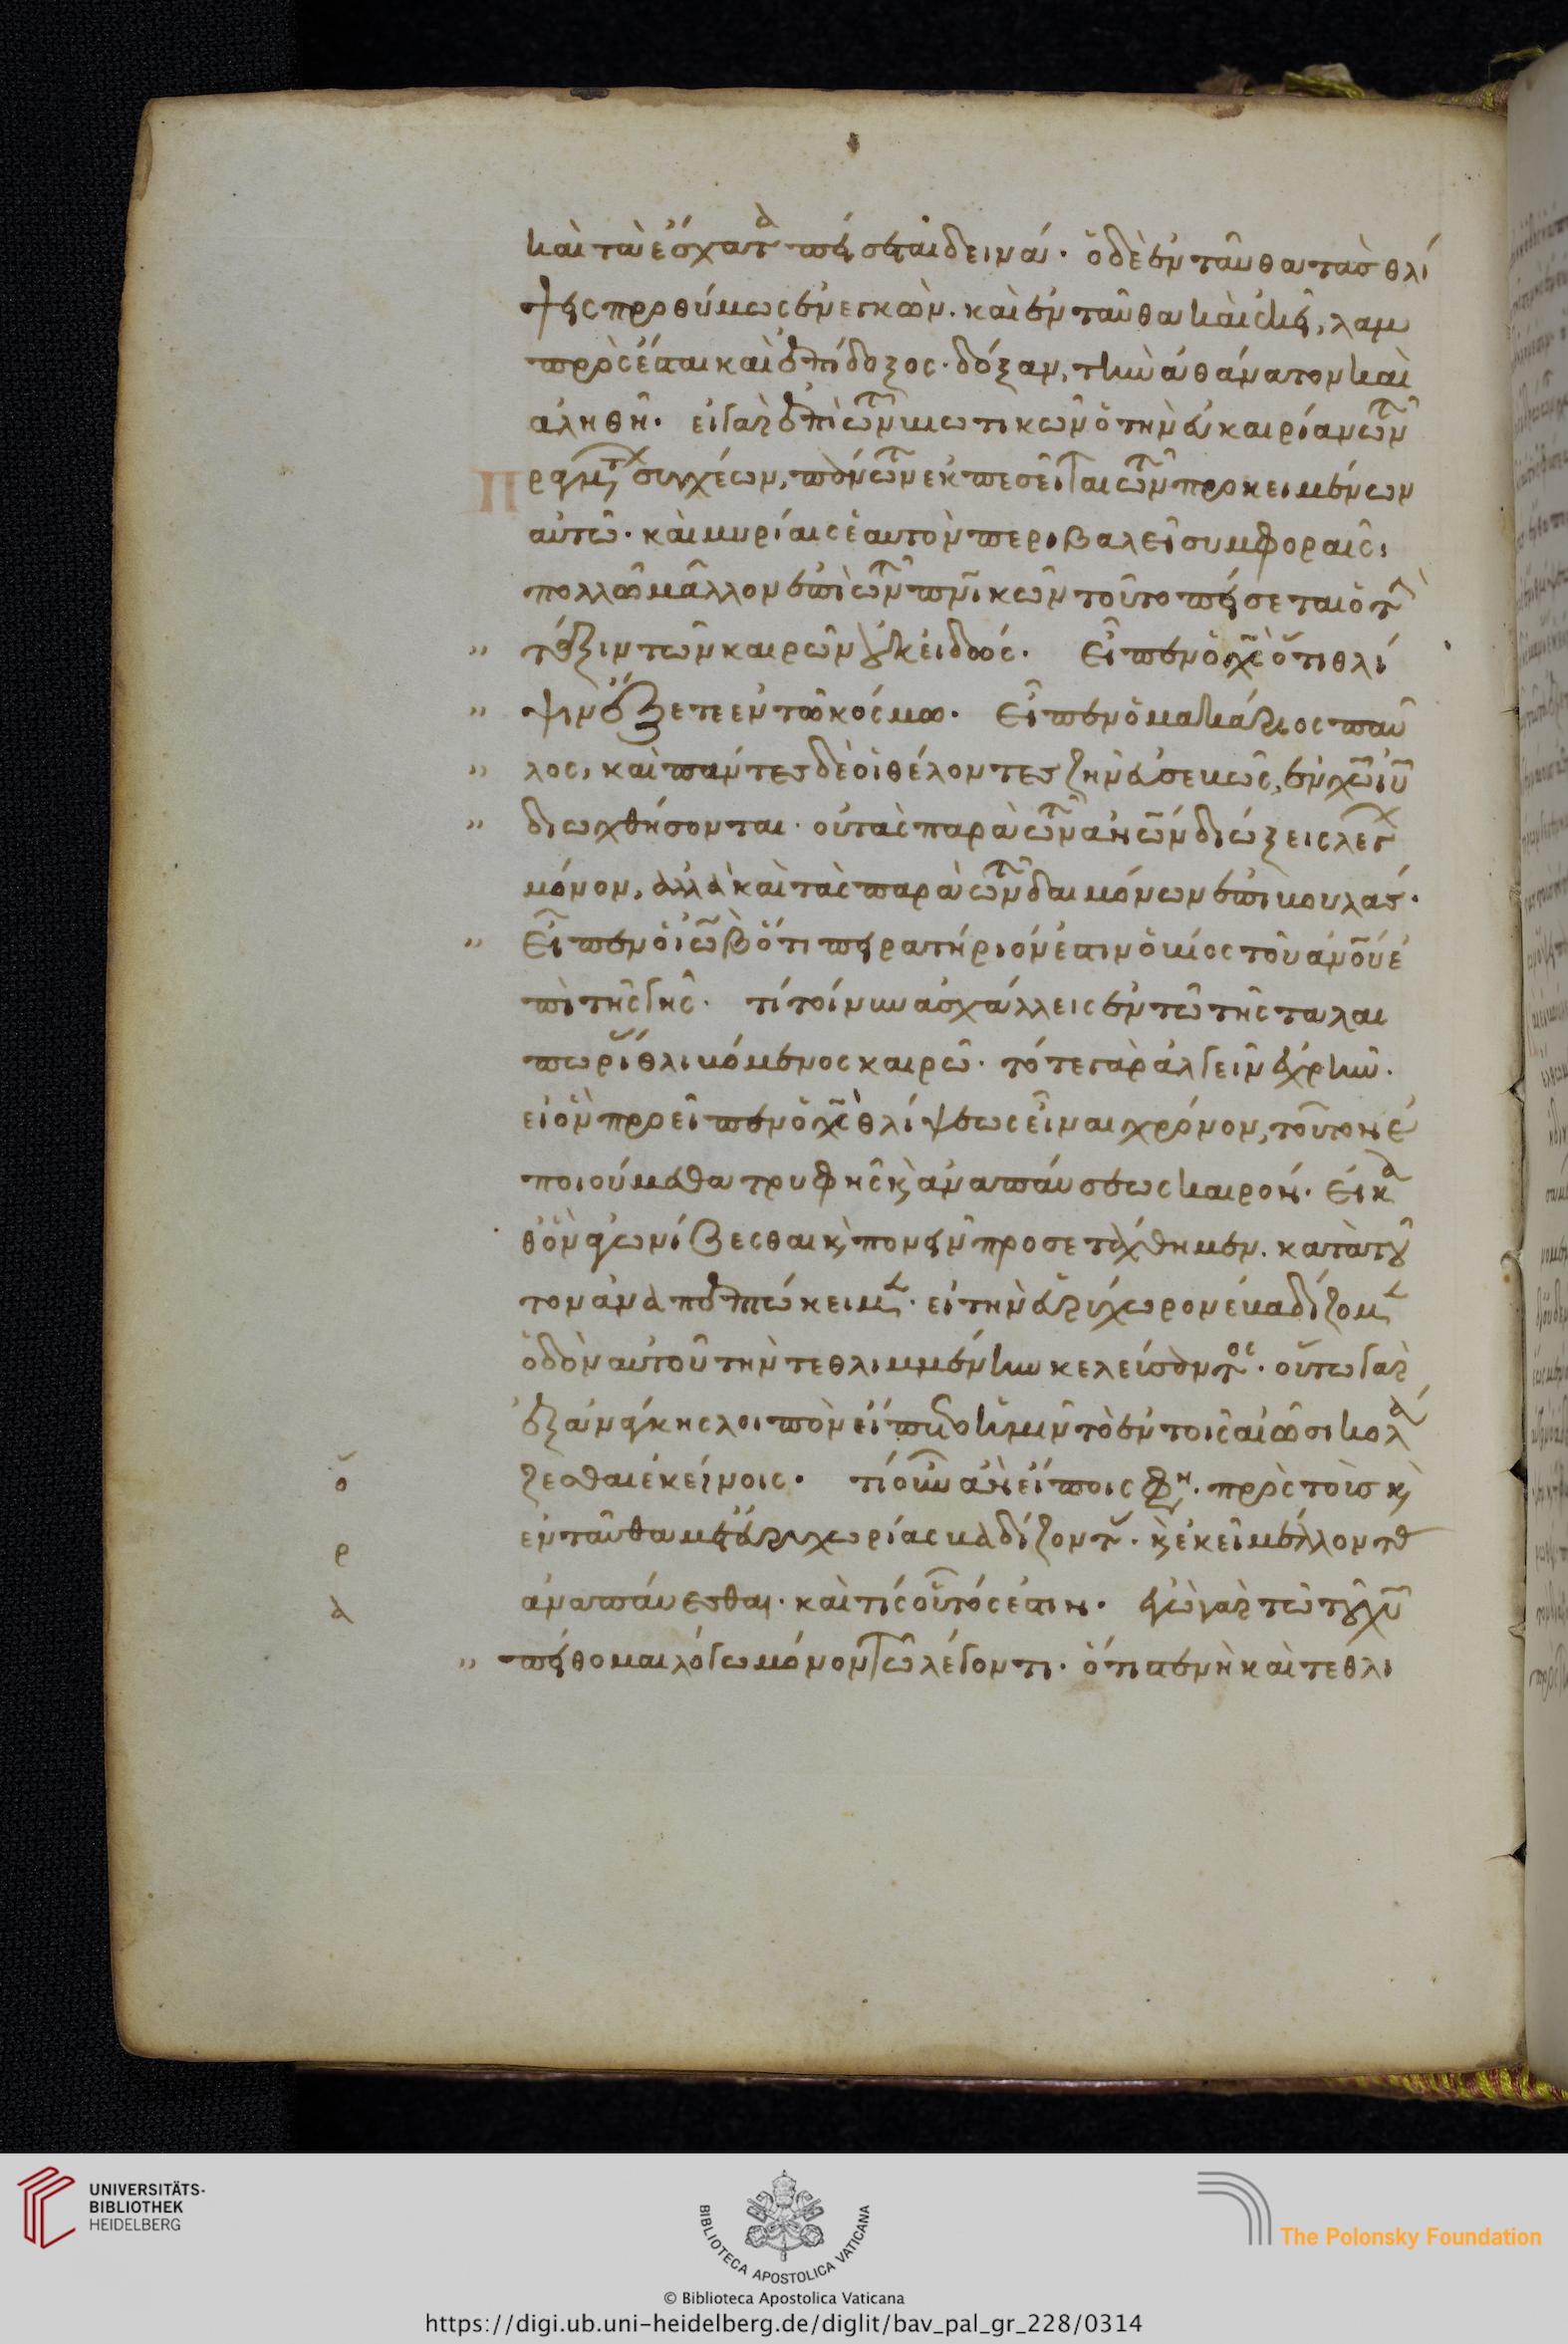 καὶ τὰ ἔσχατα πείσεται δεινά· ὁ δὲ ἐνταῦθα τὰς θλί
ψεις προθύμως ἐνεγκὼν. καὶ ἐνταῦθα καὶ ἐκεῖ, λαμ
πρὸς ἔσται καὶ ἐπίδοξος· δόξαν, τὴν ἀθάνατον καὶ
ἀληθῆ· εἰ γὰρ ἐπὶ τῶν βιωτικῶν ὁ τὴν εὐκαιρίαν τῶν
πραγμάτων συγχέων, πάντων ἐκπεσεῖται τῶν προκειμένων
αὐτῶ· καὶ μυρίαις ἑαυτὸν περιβαλεῖ συμφοραῖς,
πολλῶ μᾶλλον ἐπὶ τῶν πν̅ικῶν τοῦτο πείσεται ὁ τὴν
" τάξιν τῶν καιρῶν οὐκ εἰδώς. Εἶπεν ὁ χ̅ς ὅτι θλί
" ψιν ἕξετε ἐν τῶ κόσμω· Εἶπεν ὁ μακάριος παῦ
" λος, καὶ πάντες δὲ οἱ θέλοντες ζῆν εὐσεβῶς, ἐν χ̅ω ι̅υ
" διωχθήσονται· οὐ τὰς παρὰ τῶν α̅ν̅ω̅ν διώξεις λέγων
μόνον, ἀλλὰ καὶ τὰς παρὰ τῶν δαιμόνων ἐπιβουλάς·
" Εἶπεν ὁ ἰὼβ ὅτι πειρατήριόν ἐστιν ὁ βίος τοῦ α̅ν̅ο̅υ ἐ
πὶ τῆς γῆς· τί τοίνυν ἀσχάλλεις ἐν τῶ τῆς ταλαι
πωρίας θλιβόμενος καιρῶ· τότε γὰρ ἀλγεῖν ἐχρῆν·
εἰ ὃν προεῖπεν ὁ χ̅ς θλίψεως εἶναι χρόνον, τοῦτον ἐ
ποιούμεθα τρυφῆς κ̀ ἀναπαύσεως καιρόν· Εἰ κα
θ' ὃν ἀγωνίζεσθαι κ̀ πονεῖν προσετάχθημεν. κατὰ τοῦ
τον ἀναπεπτώκειμεν· εἰ τὴν εὐρύχωρον ἐβαδίζομεν
ὁδὸν αὐτοῦ τὴν τεθλιμμένην κελεύσαντος· οὕτω γὰρ
ἐξ ἀνάγκης λοιπὸν εἵπετο ἡμῖν τὸ ἐν τοῖς αἰῶσι κολά
ὁ ζεσθαι ἐκείνοις· τί οὖν ἂν εἴποις φη. πρὸς τοὺς κ̀
ρ ἐνταῦθα μετ' εὐρυχωρίας βαδίζοντας· κ̀ ἐκεῖ μέλλοντας
α ἀναπαύεσθαι· καὶ τίς οὗτός ἐστιν· ἐγὼ γὰρ τῶ τοῦ χ̅υ
" πείθομαι λόγω μόνον τῶ λέγοντι· ὅτι στενὴ καὶ τεθλι
UNIVERSITÄTS-
BIBLIOTHEK
HEIDELBERG
BIBLIOTECA APOSTOLICA VATICANA
The Polonsky Foundation
© Biblioteca Apostolica Vaticana
https://digi.ub.uni-heidelberg.de/diglit/bav_pal_gr_228/0314